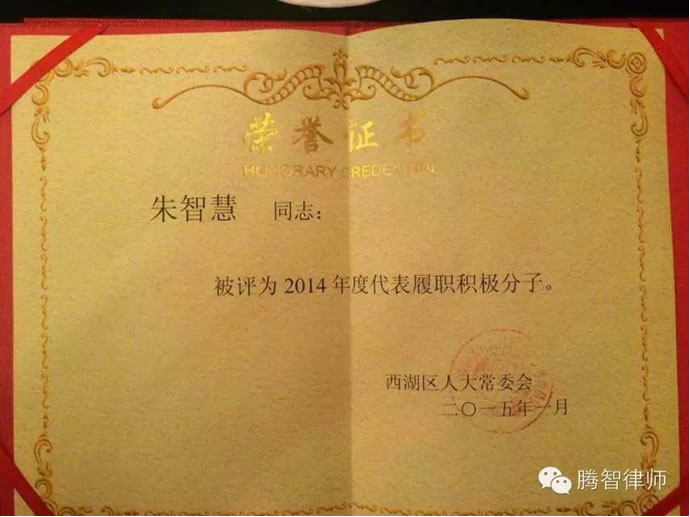 荣誉证书
HONORARY CREDENTIAL
朱智慧 同志：
被评为 2014 年度代表履职积极分子。
西湖区人大常委会
二〇一五年一月
腾智律师